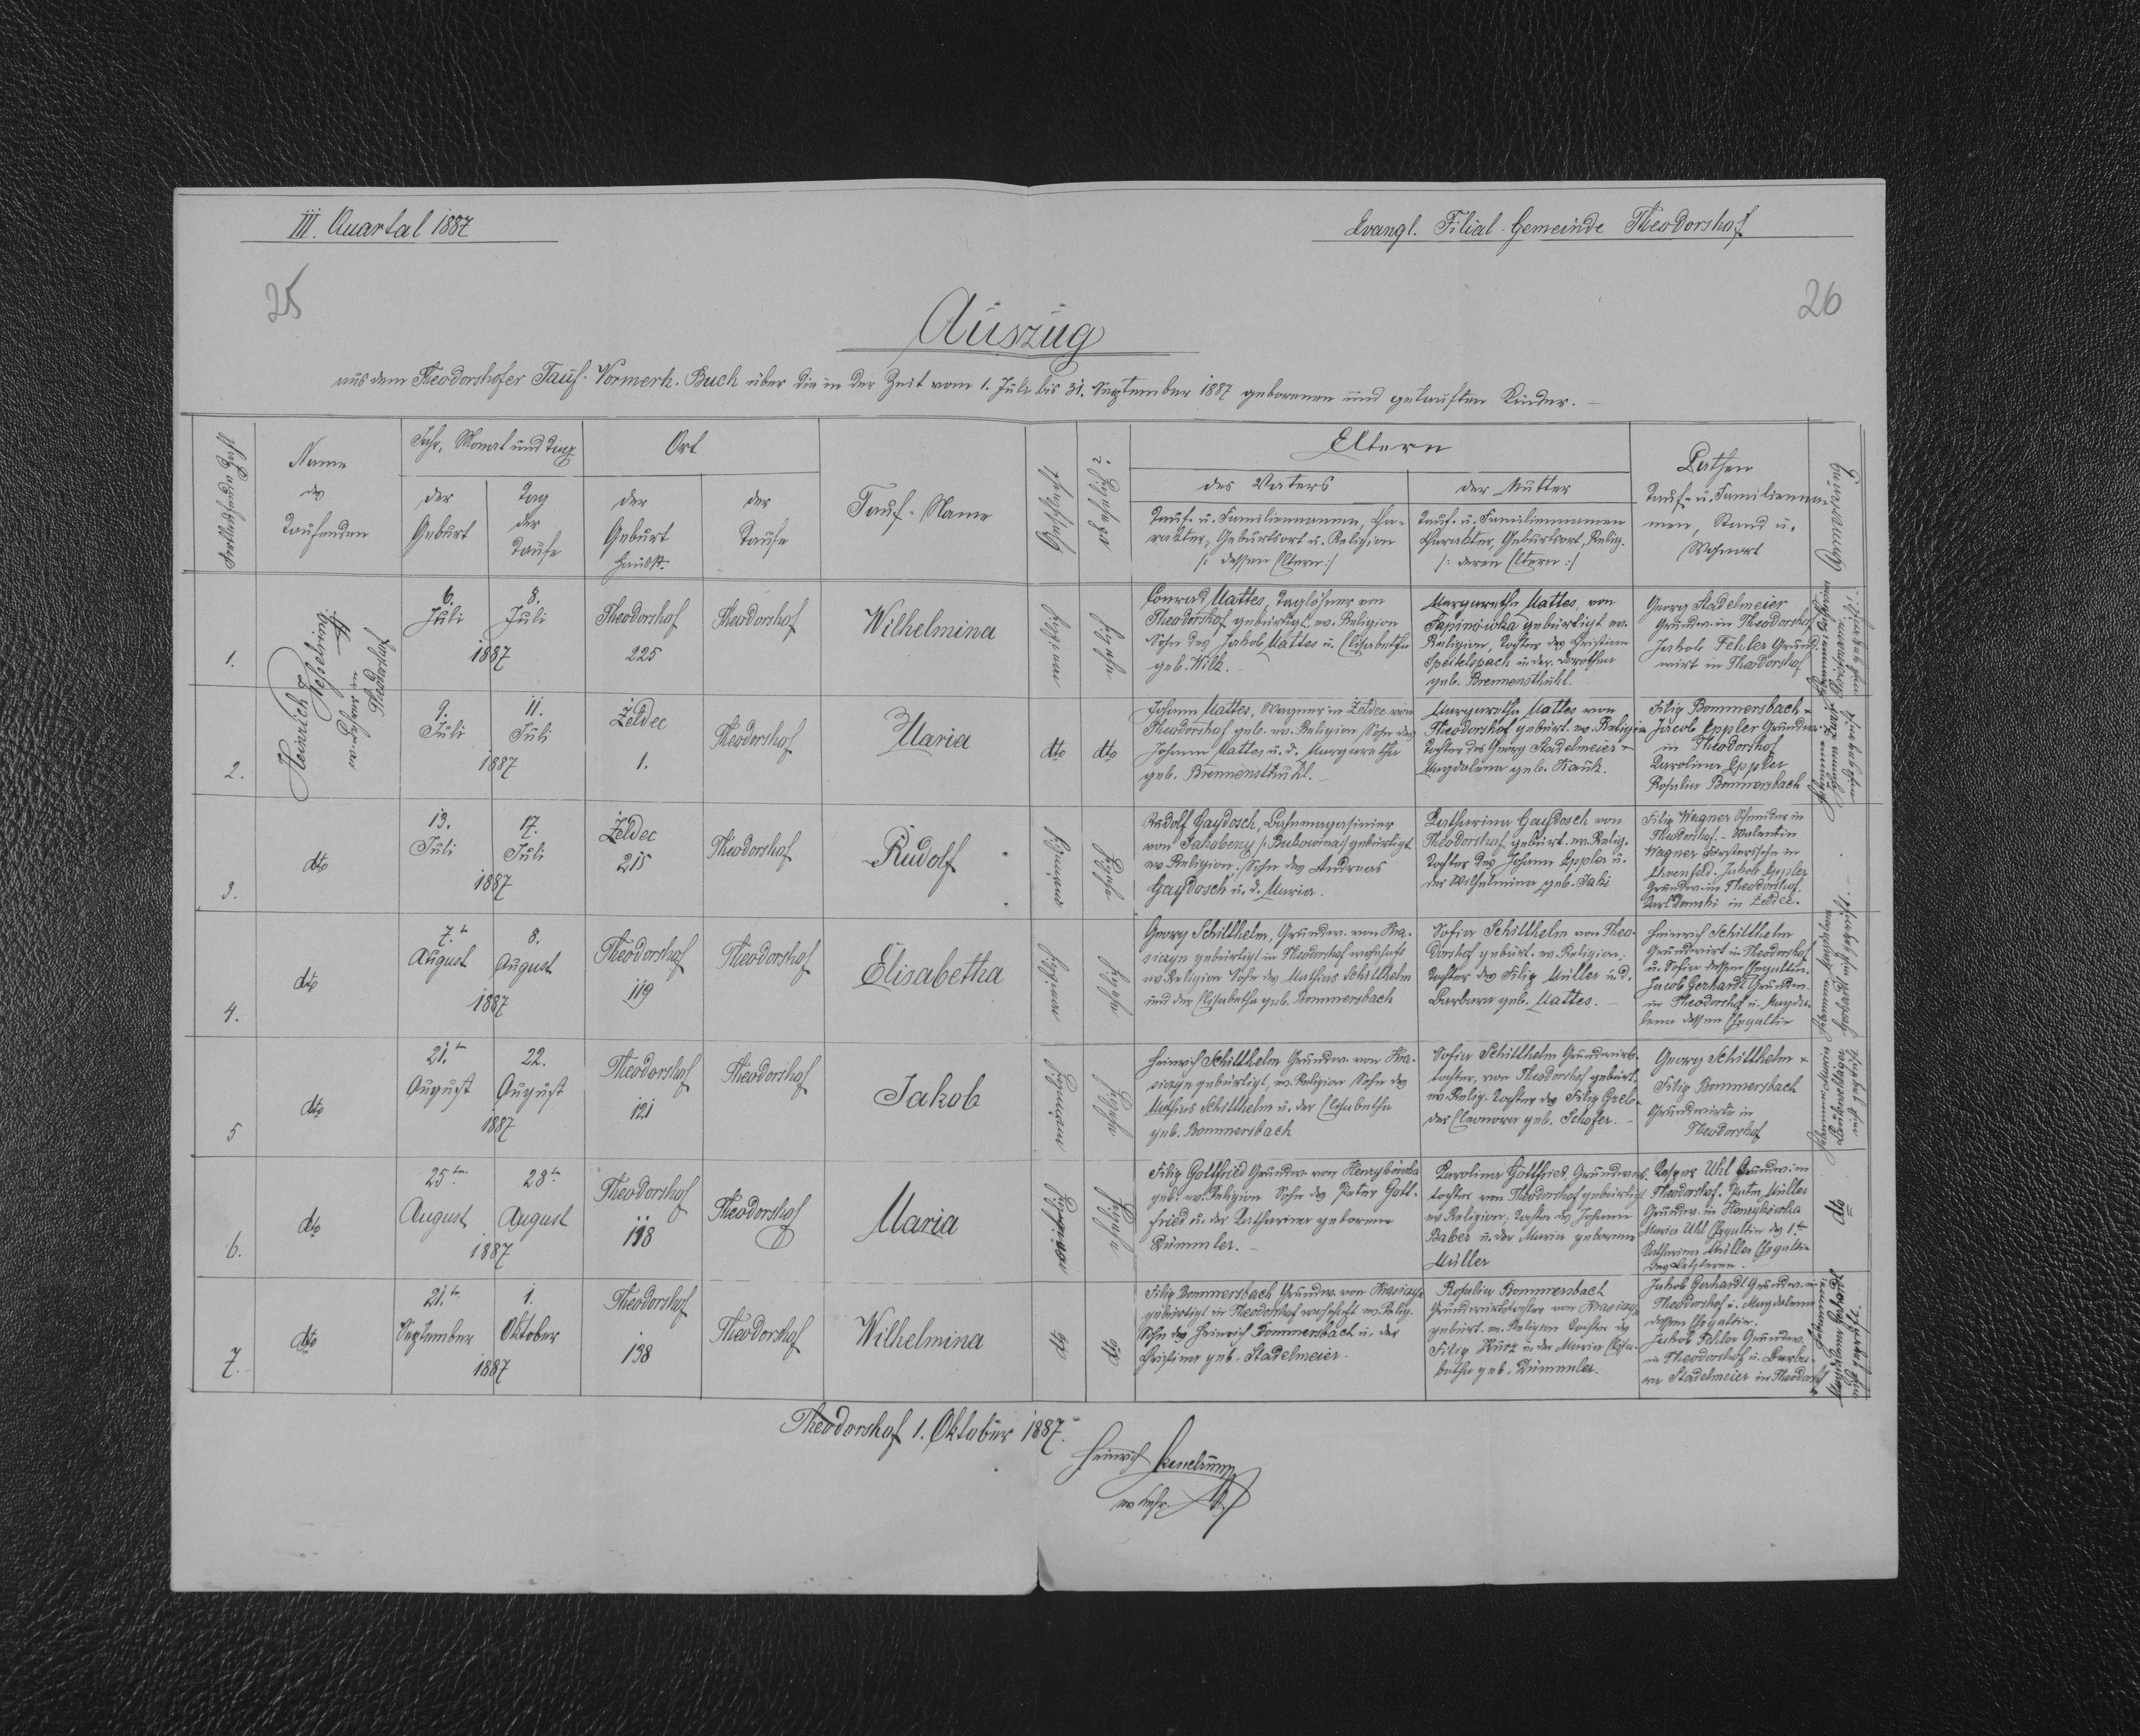 III. Quartal 1887
Evangl. Filial-Gemeinde Theodorshof
25
26
Auszug
aus dem Theodorshofer Tauf-Vormerk-Buch über die in der Zeit vom 1. Juli bis 31. September 1887 geborenen und getauften Kinder.
Fortlaufende Zahl
Name
des
Taufenden
Jahr, Monat und Tag
der
Geburt
Tag
der
Taufe
Ort
der
Geburt
Haus №
der
Taufe
Tauf-Name
Geschlecht
Eltern
des Vaters
Tauf- u. Familiennamen, Cha-
rakter, Geburtsort u. Religion
/: dessen Eltern :/
der Mutter
Tauf- u. Familiennamen
Charakter, Geburtsort, Relig.
/: deren Eltern :/
Pathen
Tauf- u. Familienna-
men, Stand u.
Wohnort
Anmerkung
1.
Heinrich
ev. Lehrer in
Theodorshof
6.
Juli
8.
Juli
1887
Theodorshof
225
Theodorshof
Wilhelmina
Conrad Mattes, Taglöhner von
Theodorshof gebürtigt ev. Religion
Sohn des Jakob Mattes u. Elisabetha
geb. Wilk.
Margaretha Mattes, von
Sapinowka gebürtigt ev.
Religion, Tochter des Christian
Speitelspach u. der Dorothea
geb. Brennensthuhl.
Georg Stadelmeier
Grundw. in Theodorshof
Jakob Fehler Grund-
wirt in Theodorshof
2.
9.
Juli
11.
Juli
1887
Żeldec
1.
Theodorshof
Maria
dto
dto
Johann Mattes, Wagner in Żeldec von
Theodorshof geb. ev. Religion Sohn des
Johann Mattes u. d. Margaretha
geb. Brennensthuhl.
Margaretha Mattes von
Theodorshof gebürt. ev. Religion
Tochter des Georg Stadelmeier
Magdalena geb. Kauk.
Filip Bommersbach
Jacob Eppler Grundw.
in Theodorshof
Karolina Eppler
Rosalia Bommersbach
3.
dto
13.
Juli
17.
Juli
1887
Żeldec
215
Theodorshof
Rudolf
Rudolf Gaydosch, Bahnmagasinier
von Jakobeny /: Bukowina :/ gebürtigt
ev. Religion, Sohn des Andreas
Gaydosch u. d. Maria.
Katharina Gaydosch von
Theodorshof gebürt. ev. Relig.
Tochter des Johann Eppler u.
der Wilhelmina geb. Jaki
Filip Wagner Schneider in
Theodorshof. Valentin
Wagner Försterssohn in
Ehrenfeld. Jakob Eppler
Grundw. in Theodorshof.
in Żeldec.
4.
dto
7.
August
8.
August
1887
Theodorshof
119
Theodorshof
Elisabetha
Georg Schillhelm, Grundw. von Kra-
siczyn gebürtigt in Theodorshof wohnhaft
ev. Religion Sohn des Mathias Schillhelm
und der Elisabetha geb. Bommersbach
Sofia Schillhelm von Theo-
dorshof gebürt. ev. Religion,
Tochter des Filip Müller u. d.
Barbara geb. Mattes.
Heinrich Schillhelm
Grundwirt in Theodorshof
u. Sofia dessen Ehegattin.
Jacob Gerhardt Grundw.
in Theodorshof u. Magda-
lena dessen Ehegattin
5
dto
21.
August
22.
August
1887
Theodorshof
121
Theodorshof
Jakob
Heinrich Schillhelm Grundw. von Kra-
siczyn gebürtigt, ev. Religion Sohn des
Mathias Schillhelm u. der Elisabetha
geb. Bommersbach
Sofia Schillhelm Grundwirts-
tochter, von Theodorshof gebürt.
ev. Relig. Tochter des Filip
der Eleonora geb. Schäfer.
Georg Schillhelm
Filip Bommersbach
Grundwirte in
Theodorshof
6.
dto
25.
August
28.
August
1887
Theodorshof
118
Theodorshof
Maria
Filip Gottfried Grundw. von Henrykówka
geb. ev. Religion Sohn des Peter Gott-
fried u. der Katharina geborene
Dümmler.
Karolina Gottfried, Grundwirts-
tochter von Theodorshof gebürtigt
ev. Religion, Tochter des Johann
Baber u. der Maria geborene
Müller
Kaspar Uhl Grundw. in
Theodorshof. Peter Müller
Grundw. in Henrykówka
Maria Uhl Ehegattin des 1.
Katharina Müller Ehegattin
des Letzteren.
dto
7.
dto
21.
September
1.
Oktober
1887
Theodorshof
138
Theodorshof
Wilhelmina
dto
dto
Filip Bommersbach Grundw. von Krasiczyn
gebürtigt in Theodorshof wohnhaft ev. Relig.
Sohn des Heinrich Bommersbach u. der
Christina geb. Stadelmeier.
Rosalia Bommersbach
Grundwirtstochter von Krasiczyn
gebürt. ev. Religion Tochter des
Filip Kurz u. der Maria Elisa-
betha geb. Dümmler.
Jakob Gerhardt Grundw. in
Theodorshof u. Magdalena
dessen Ehegattin.
Jakob Fehler Grundw.
in Theodorshof u. Barba-
ra Stadelmeier in Theodorshof
Theodorshof 1. Oktober 1887.
Heinrich
ev. Lehr.